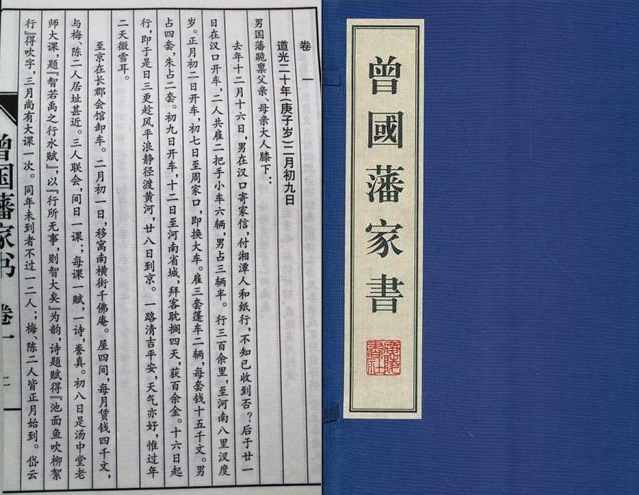 曾國藩家書
卷一
道光二十年(庚子岁)二月初九日
男国藩跪禀父亲、母亲大人膝下：
去年十二月十六日，男在汉口寄家信，付湘潭人和纸行，不知已收到否？后于廿一
日在汉口开车，二人共雇二把手小车六辆，男占三辆半。行三百余里，至河南八里汊度
岁。正月初二日开车，初七日至周家口，即换大车。雇三套篷车二辆，每套钱十五千文。男
占四套，朱占二套。初九日开车，十二日至河南省城，拜客耽搁四天，获百余金。十六日起
行，即于是日三更趁风平浪静径渡黄河，廿八日到京。一路清吉平安，天气亦好，惟过年
二天微雪耳。
至京在长郡会馆卸车。二月初一日，移寓南横街千佛庵。屋四间，每月赁钱四千文，
与梅、陈二人居址甚近。三人联会，间日一课；每课一赋，一诗，誊真。初八日是汤中堂老
师大课，题『智若禹之行水赋』，以『行所无事，则智大矣』为韵，诗题赋得『池面鱼吹柳絮
行』得吹字，三月尚有大课一次。同年未到者不过一二人；梅、陈二人皆正月始到。岱云
曾国藩家书 卷一 二